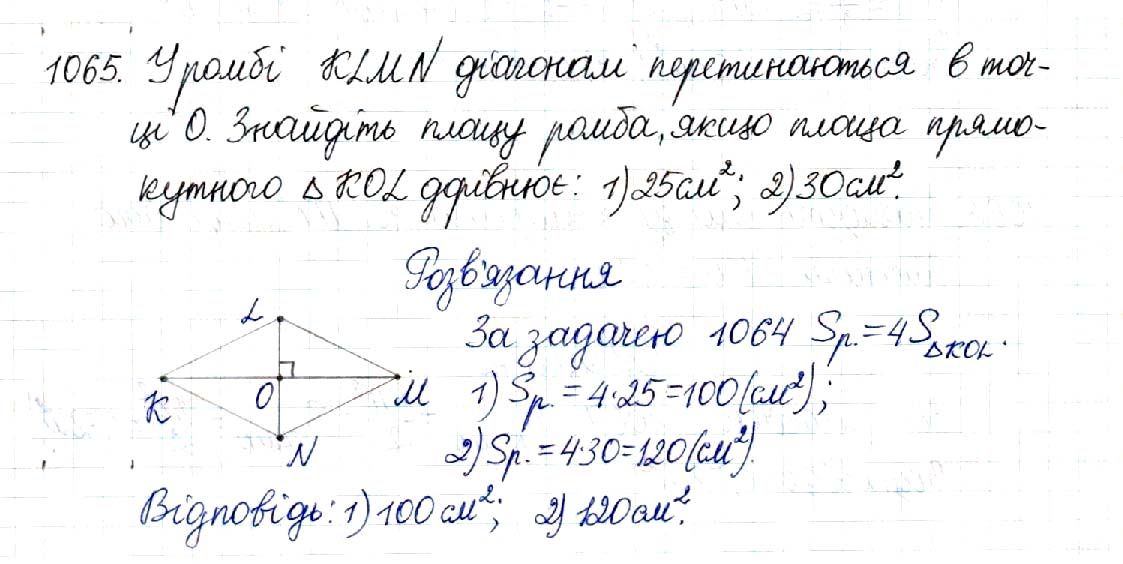 1065. У ромбі KLMN діагоналі перетинаються в точ-
ці О. Знайдіть площу ромба, якщо площа прямо-
кутного △KOL дорівнює: 1) 25 см²; 2) 30 см².
Розв'язання
За задачею 1064 Sр. = 4S△KOL.
1) Sр. = 4·25 = 100 (см²);
2) Sр. = 4·30 = 120 (см²).
L
K
O
M
N
Відповідь: 1) 100 см²; 2) 120 см².